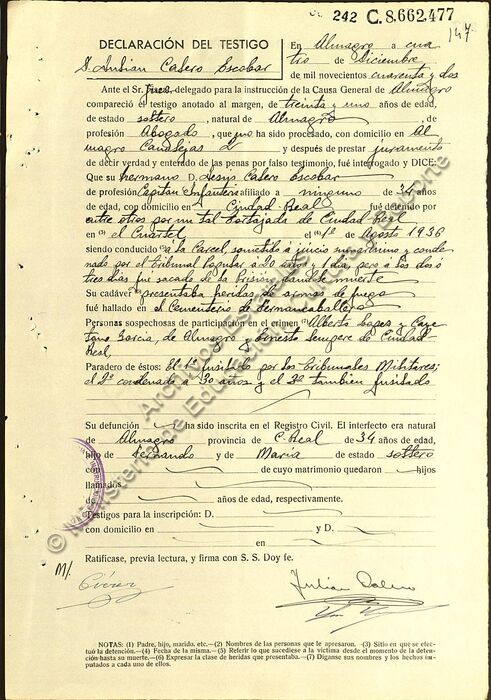 242 C.8.662.477
147
DECLARACIÓN DEL TESTIGO
D. Julian Calero Escobar
En Almagro a cua
tro de Diciembre
de mil novecientos cuarenta y dos
Ante el Sr. Juez delegado para la instrucción de la Causa General de Almagro
compareció el testigo anotado al margen, de treinta y uno años de edad,
de estado soltero, natural de Almagro, de
profesión Abogado, que no ha sido procesado, con domicilio en Al
magro Canalejas 2 y después de prestar juramento
de decir verdad y enterado de las penas por falso testimonio, fué interrogado y DICE:
Que su hermano D. Jesus Calero Escobar
de profesión Capitan Infanteria afiliado a ninguno de 34 años
de edad, con domicilio en Ciudad Real fué detenido por
entre otros por un tal Cortajada de Ciudad Real
en (3) el Cuartel el (4) 1º de Agosto 1936
siendo conducido (5) a la Carcel sometido a juicio sumarisimo y conde
nado por el Tribunal Popular a 20 años y 1 dia, pero a los dos ó
tres dias fué sacado de la Prisión dandole muerte
Su cadáver (6) presentaba heridas de armas de fuego
fué hallado en el Cementerio de Fernancaballero
Personas sospechosas de participación en el crimen (7) Alberto Lopez y Caye
tano Garcia, de Almagro y Ernesto Sempere de Ciudad
Real,
Paradero de éstos: El 1º fusilado por los Tribunales Militares;
el 2º condenado a 30 años y el 3º tambien fusilado
Su defunción ha sido inscrita en el Registro Civil. El interfecto era natural
de Almagro provincia de C. Real de 34 años de edad,
hijo de Fernando y de Maria de estado soltero
con de cuyo matrimonio quedaron hijos
llamados
de años de edad, respectivamente.
Testigos para la inscripción: D.
con domicilio en y D.
en
Ratifícase, previa lectura, y firma con S. S. Doy fe.
M/.
Julian Calero
NOTAS: (1) Padre, hijo, marido, etc.—(2) Nombres de las personas que le apresaron.—(3) Sitio en que se efec-
tuó la detención.—(4) Fecha de la misma.—(5) Referir lo que sucediese a la víctima desde el momento de la deten-
ción hasta su muerte.—(6) Expresar la clase de heridas que presentaba.—(7) Díganse sus nombres y los hechos im-
putados a cada uno de ellos.